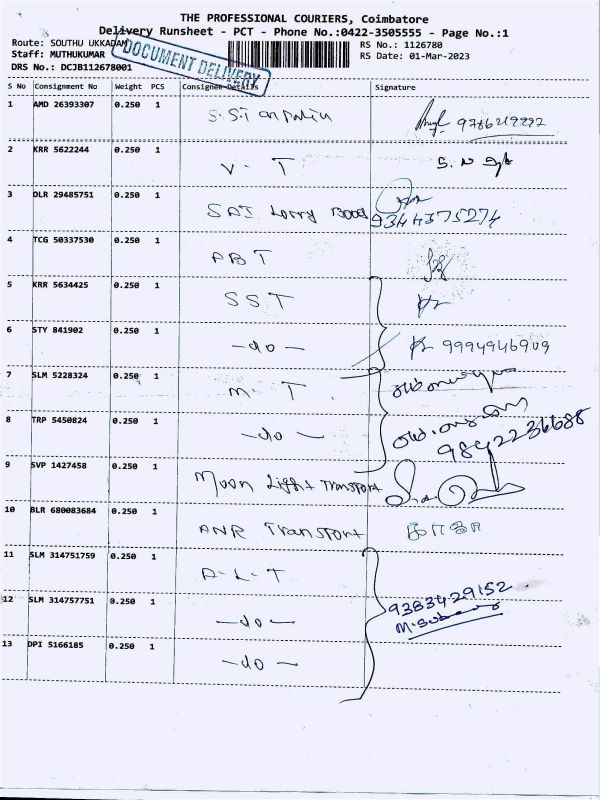 THE PROFESSIONAL COURIERS, Coimbatore
Delivery Runsheet - PCT - Phone No.:0422-3505555 - Page No.:1
Route: SOUTHU UKKADAM RS No.: 1126780
Staff: MUTHUKUMAR RS Date: 01-Mar-2023
DRS No.: DCJB112678001
DOCUMENT DELIVERY
S No Consignment No Weight PCS Consignee Details Signature
1 AMD 26393307 0.250 1
2 KRR 5622244 0.250 1 V. T
3 DLR 29485751 0.250 1 SAI Lorry 9344375274
4 TCG 50337530 0.250 1 ABT
5 KRR 5634425 0.250 1 SST
6 STY 841902 0.250 1 -do- 9994946909
7 SLM 5228324 0.250 1 M. T
8 TRP 5450824 0.250 1 -do- 9842236688
9 SVP 1427458 0.250 1 Moon Light Transport
10 BLR 680083684 0.250 1 ANR Transport
11 SLM 314751759 0.250 1 A-L-T
12 SLM 314757751 0.250 1 -do- 9383429152
13 DPI 5166185 0.250 1 -do-